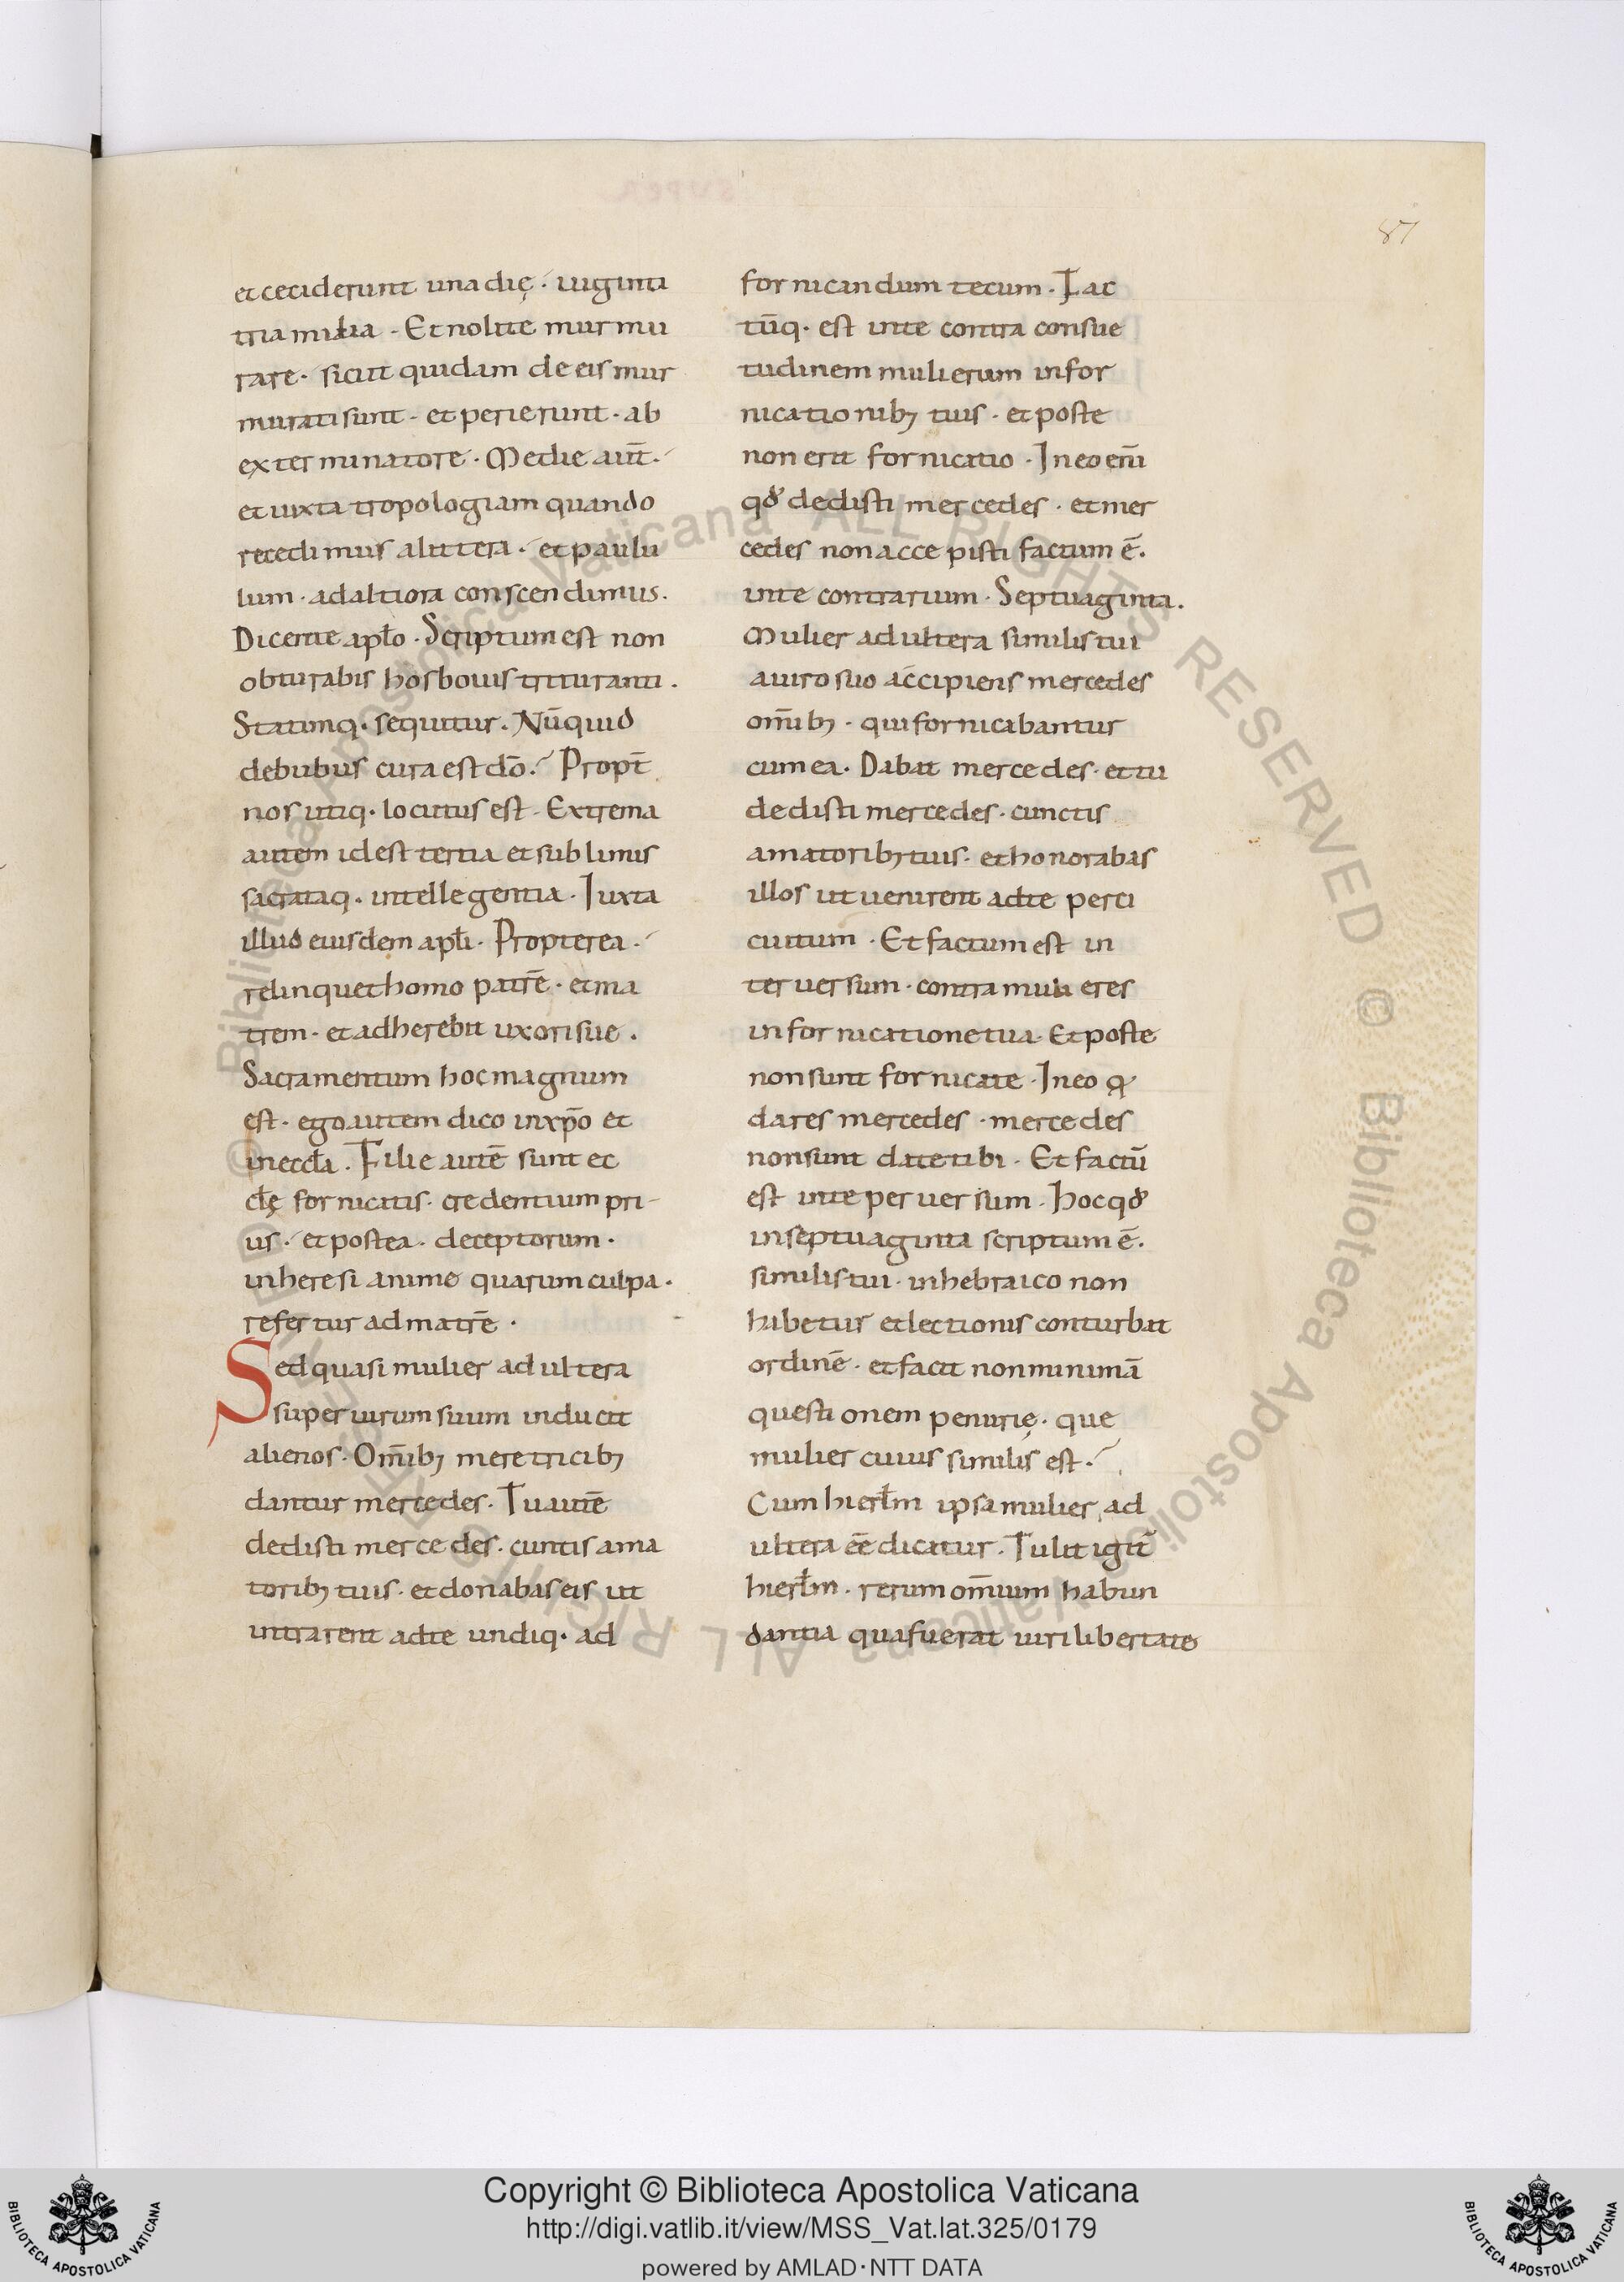 87
et ceciderunt una dię · uiginti
tria milia · Et nolite murmu
rare · sicut quidam de eis mur
murati sunt · et perierunt · ab
exterminatore · Medie aut̄ ·
et iuxta tropologiam quando
recedimus a littera · et paulu
lum · ad altiora conscendimus ·
Dicente apl̄o · Scriptum est non
obturabis hos bouis trituranti ·
Statimq · sequitur · Nūquid
de bubus cura est dō · Propt̄
nos utiq · locutus est · Extrema
autem id est tertia et sublimis
sacrataq · intellegentia · Iuxta
illud eiusdem apl̄i · Propterea ·
relinquet homo patrē · et ma
trem · et adherebit uxori sue ·
Sacramentum hoc magnum
est · ego autem dico in xp̄o et
in eccl̄a · Filie autē sunt ec
cl̄ę fornicatis · credentium pri-
us · et postea · deceptorum ·
in heresi anime quarum culpa ·
refertur ad matrē ·
Sed quasi mulier adultera
super uirum suum inducit
alienos · Om̄ibꝫ meretricibꝫ
dantur mercedes · Tu autē
dedisti mercedes · cuntis ama
toribꝫ tuis · et donabas eis ut
intrarent ad te undiq · ad
fornicandum tecum · Fac
tūq · est in te contra consue
tudinem mulierum in for
nicationibꝫ tuis · et post e
non erit fornicatio · In eo eni̅
qđ dedisti mercedes · et mer
cedes non accepisti factum ē ·
in te contrarium · Septuaginta ·
Mulier adultera similis tui
a uiro suo accipiens mercedes
om̄ibꝫ · qui fornicabantur
cum ea · Dabat mercedes · et tu
dedisti mercedes · cunctis
amatoribꝫ tuis · et honorabas
illos ut uenirent ad te per ci
cuitum · Et factum est in
te ruersum · contra mulieres
in fornicatione tua · Et post e
non sunt fornicate · In eo ꝙ
dares mercedes · mercedes
non sunt date tibi · Et factū
est in te peruersum · Hoc qđ
in septuaginta scriptum ē ·
similis tui · in hebraico non
habetur et lectionis conturbat
ordinē · et facit non minimā
questionem penurię · que
mulier cuius similis est ·
Cum hierl̄m ipsa mulier ad
ultera eē dicatur · Tulit igit̄
hierl̄m · rerum om̄ium habun
dantia qua fuerat uiri libertate
Copyright © Biblioteca Apostolica Vaticana
http://digi.vatlib.it/view/MSS_Vat.lat.325/0179
powered by AMLAD·NTT DATA
BIBLIOTECA APOSTOLICA VATICANA
BIBLIOTECA APOSTOLICA VATICANA
© Biblioteca Apostolica Vaticana ALL RIGHTS RESERVED © Biblioteca Apostolica Vaticana ALL RIGHTS RESERVED